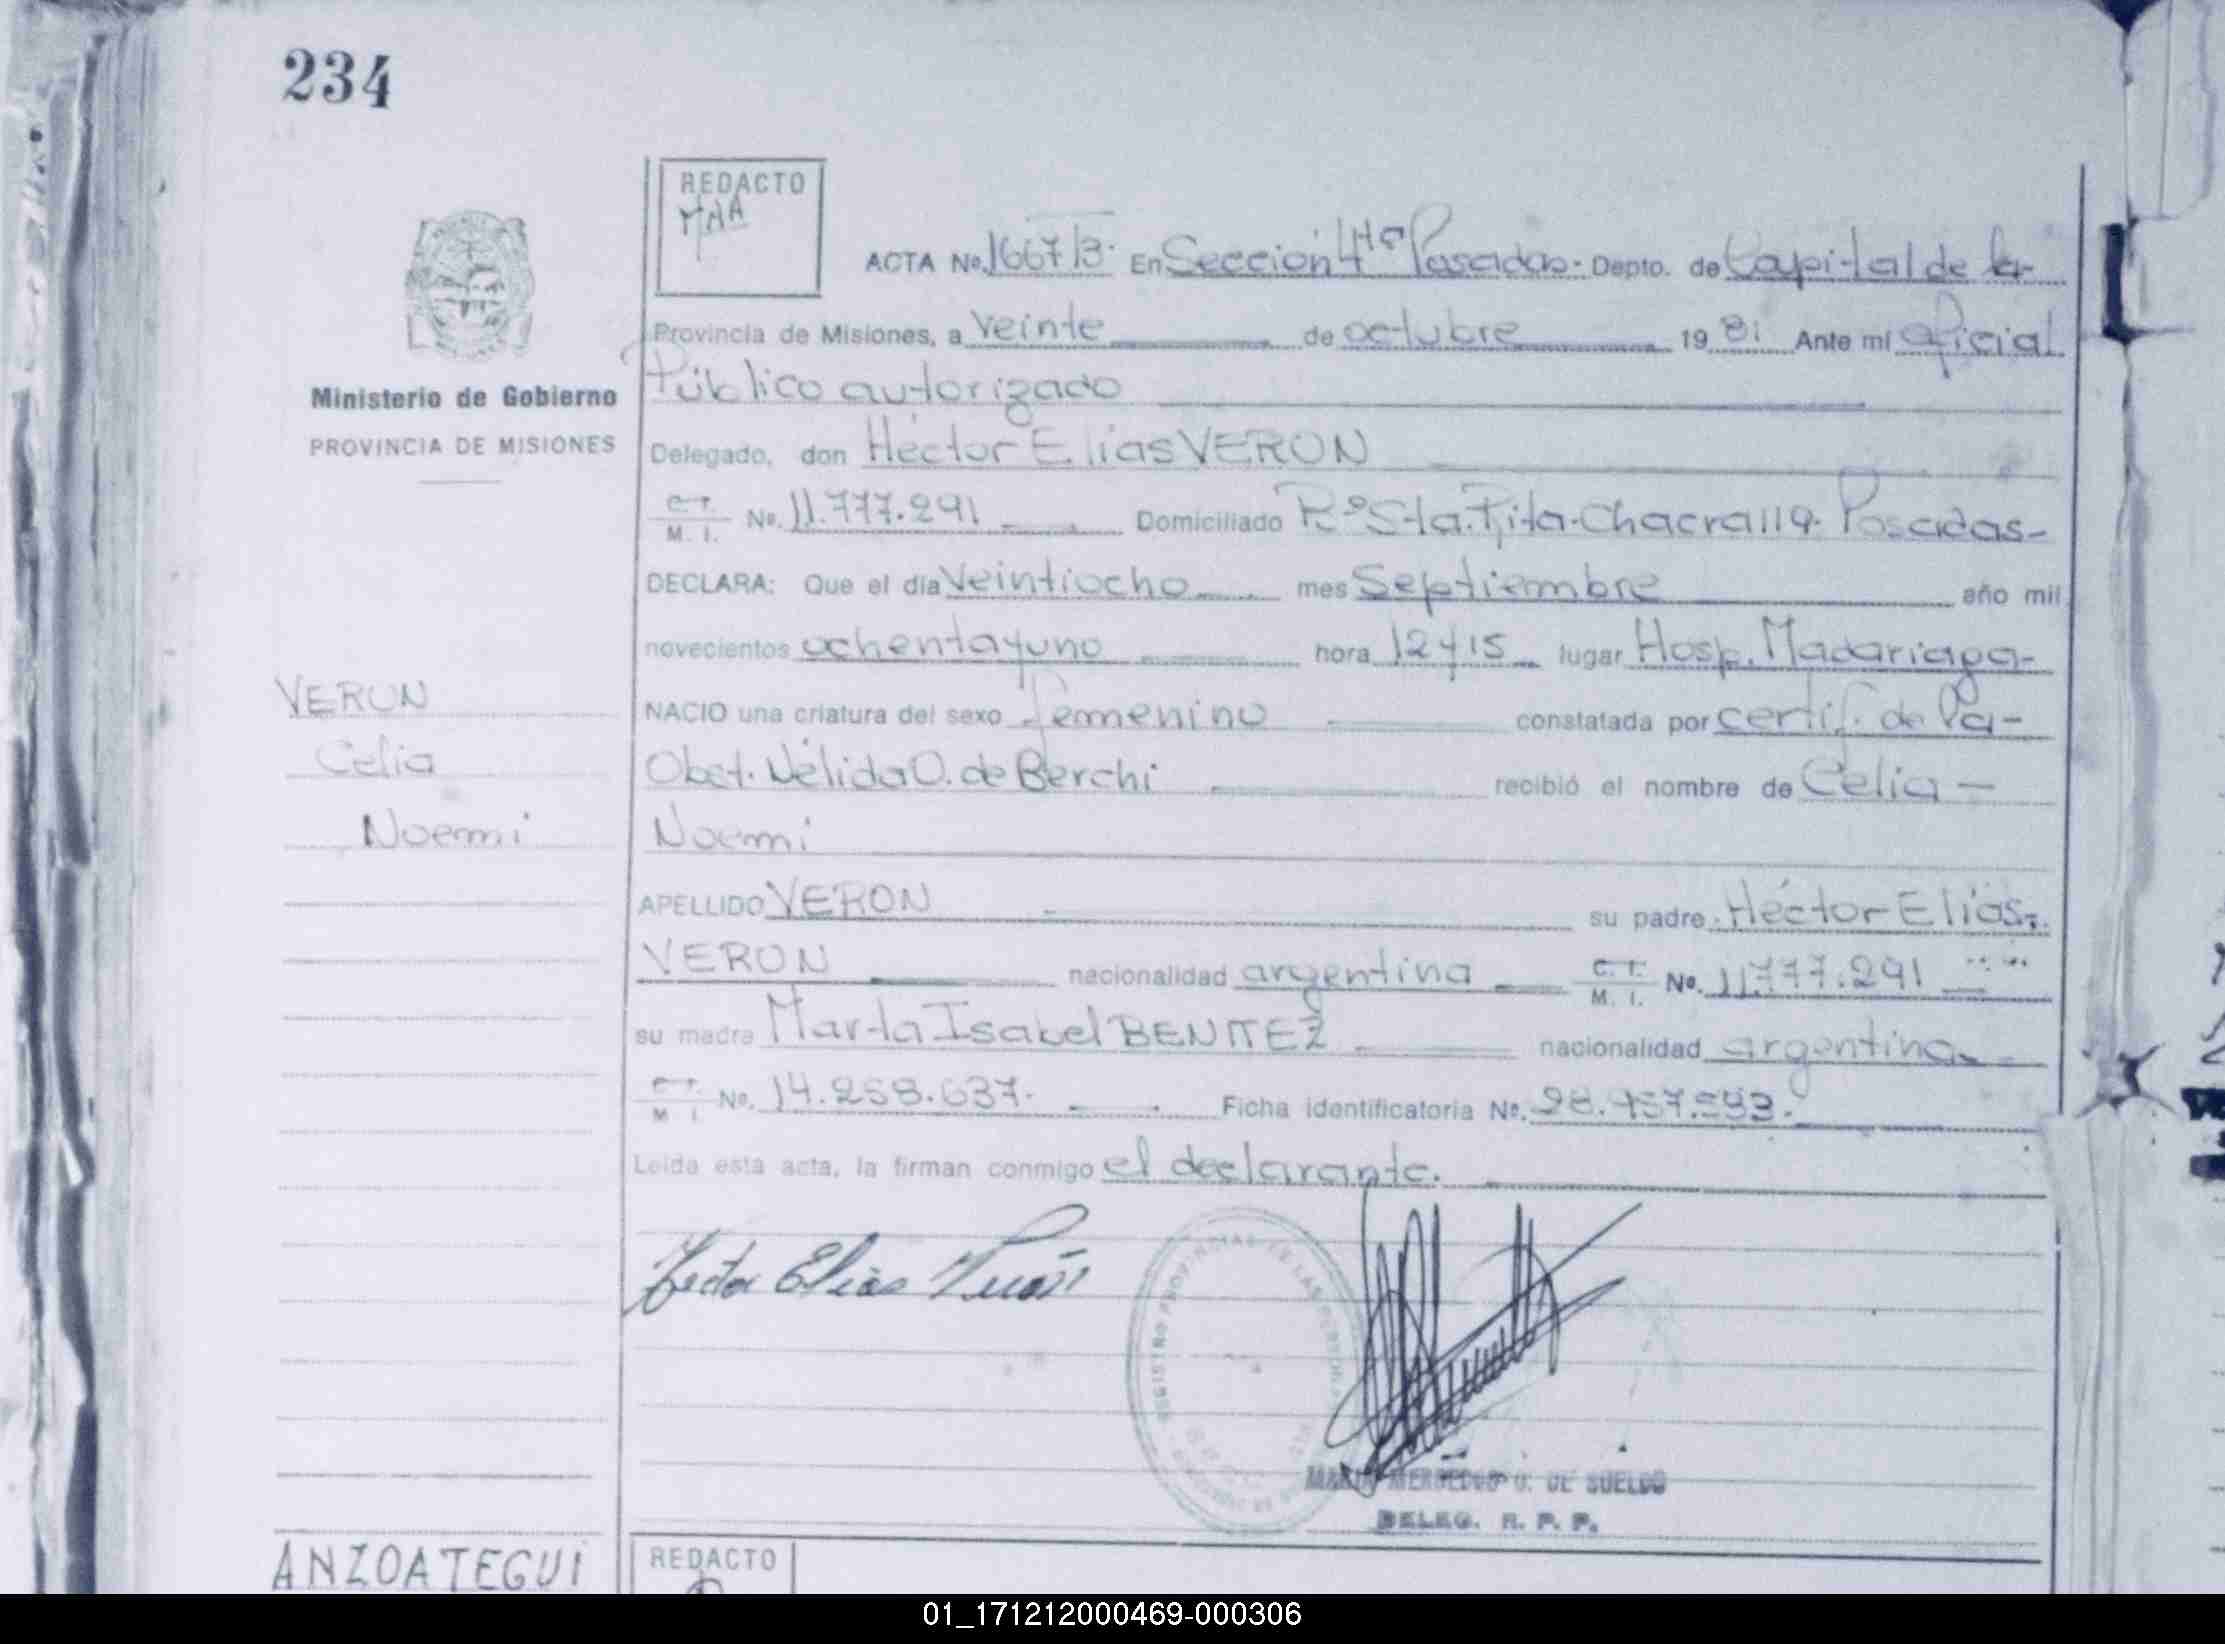 234
REDACTO
MAA
ACTA No. 1667/3. En Sección 4ta Posadas- Depto. de Capital de la
Provincia de Misiones, a veinte de octubre 1981 Ante mí oficial
Ministerio de Gobierno
PROVINCIA DE MISIONES
Público autorizado
Delegado, don Héctor Elías VERON
M. I. No. 11.777.291 Domiciliado Bº Sta. Rita-Chacra 119- Posadas-
DECLARA: Que el día veintiocho mes Septiembre año mil
novecientos ochenta y uno hora 12 y 15 lugar Hosp. Madariaga-
VERON
Celia
Noemi
NACIO una criatura del sexo femenino constatada por certif. de la-
Obst. Nélida O. de Berchi recibió el nombre de Celia -
Noemi
APELLIDO VERON su padre Héctor Elías
VERON nacionalidad argentina C. I. M. I. No. 11.777.291
su madre Marta Isabel BENITEZ nacionalidad argentina
M. I. No. 14.258.637. Ficha identificatoria No.
Leída esta acta, la firman conmigo el declarante.
Hector Elias Verón
REGISTRO PROVINCIAL DE LAS PERSONAS
MARIA MERCEDES G. DE SUELDO
DELEG. R. P. P.
ANZOATEGUI
REDACTO
01_171212000469-000306